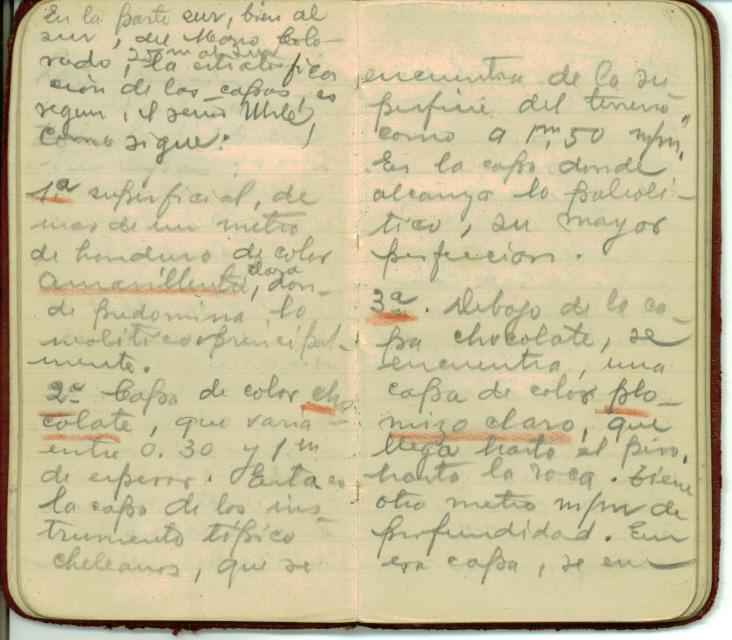 En la parte sur, bien al
sur, del Morro Colo-
rado, 25 m al sur
la estratifica
ción de las capas, es
segun, el señor Uhle,
como sigue:
1.a superficial, de
mas de un metro
de hondura de color
amarillento, claza, don-
de predomina lo
neolitico principal-
mente.
2a Capa de color cho-
colate, que varia
entre 0.30 y 1 m
de espesor. Esta es
la capa de los ins-
trumento típico
cheleanos, que se
encuentra de la su
perficie del terreno
como a 1m,50 m/m,
Es la capa donde
alcanza lo paleolí-
tico, su mayor
perfeccion.
3a. Debajo de la ca-
pa chocolate, se
encuentra, una
capa de color plo-
mizo claro, que
llega hasta el piso,
hasta la roca. tiene
otro metro m/m de
profundidad. En
esa capa, se en